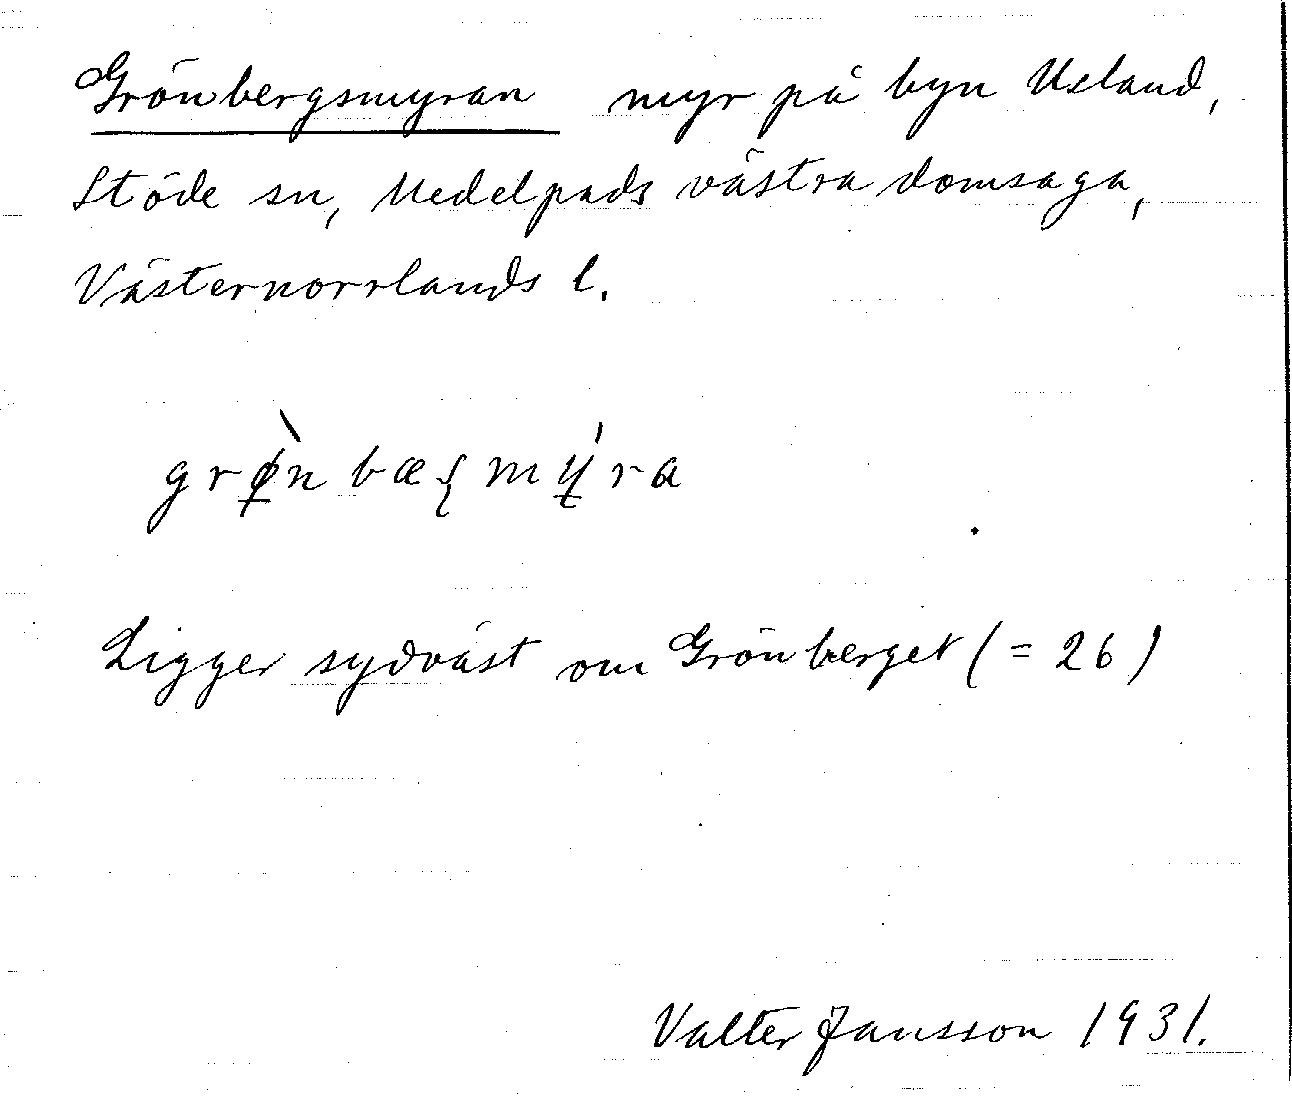 Grönbergsmyran myr på byn Usland,
Stöde sn, Medelpads västra domsaga,
Västernorrlands l.
grø̀nbæʂmýra
Ligger sydväst om Grönberget (= 26)
Valter Jansson 1931.